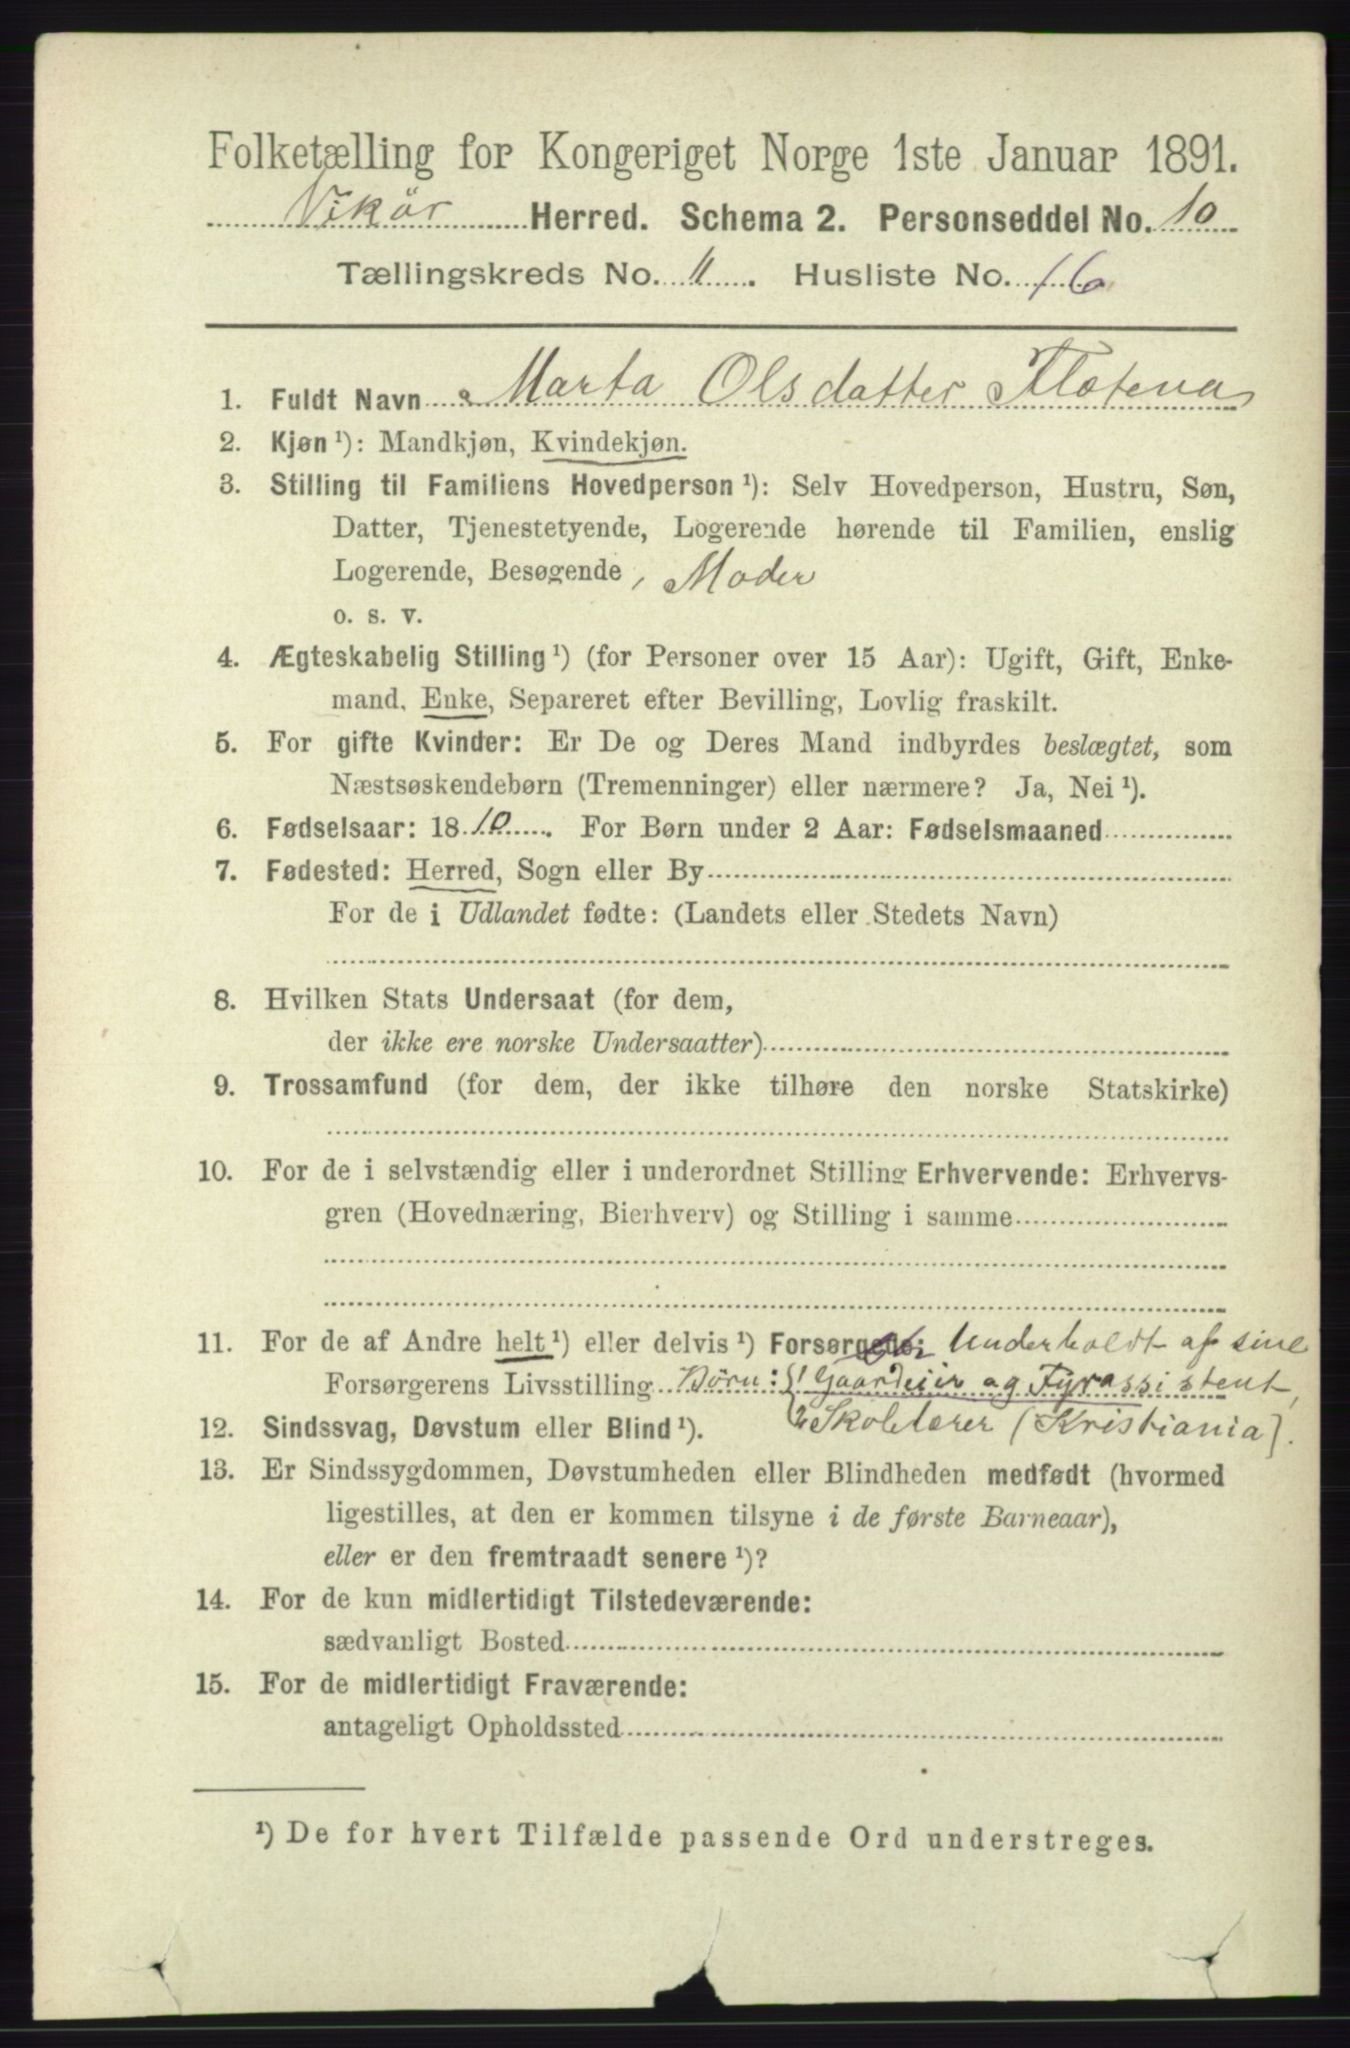 Folketælling for Kongeriget Norge 1ste Januar 1891.
Vikör Herred. Schema 2. Personseddel No. 10
Tællingskreds No. 11. Husliste No. 16
1. Fuldt Navn Marta Olsdatter Flotena
2. Kjøn ¹): Mandkjøn, Kvindekjøn.
3. Stilling til Familiens Hovedperson ¹): Selv Hovedperson, Hustru, Søn,
Datter, Tjenestetyende, Logerende hørende til Familien, enslig
Logerende, Besøgende, Moder
o. s. v.
4. Ægteskabelig Stilling ¹) (for Personer over 15 Aar): Ugift, Gift, Enke-
mand, Enke, Separeret efter Bevilling, Lovlig fraskilt.
5. For gifte Kvinder: Er De og Deres Mand indbyrdes beslægtet, som
Næstsøskendebørn (Tremenninger) eller nærmere? Ja, Nei ¹).
6. Fødselsaar: 1810. For Børn under 2 Aar: Fødselsmaaned
7. Fødested: Herred, Sogn eller By
For de i Udlandet fødte: (Landets eller Stedets Navn)
8. Hvilken Stats Undersaat (for dem,
der ikke ere norske Undersaatter)
9. Trossamfund (for dem, der ikke tilhøre den norske Statskirke)
10. For de i selvstændig eller i underordnet Stilling Erhvervende: Erhvervs-
gren (Hovednæring, Bierhverv) og Stilling i samme
11. For de af Andre helt ¹) eller delvis ¹) Forsørgede: Underholdt af sine
Forsørgerens Livsstilling Börn: 1 Gaardeier og Fyrassistent,
2 Skolelærer (Kristiania).
12. Sindssvag, Døvstum eller Blind ¹).
13. Er Sindssygdommen, Døvstumheden eller Blindheden medfødt (hvormed
ligestilles, at den er kommen tilsyne i de første Barneaar),
eller er den fremtraadt senere ¹)?
14. For de kun midlertidigt Tilstedeværende:
sædvanligt Bosted
15. For de midlertidigt Fraværende:
antageligt Opholdssted
¹) De for hvert Tilfælde passende Ord understreges.